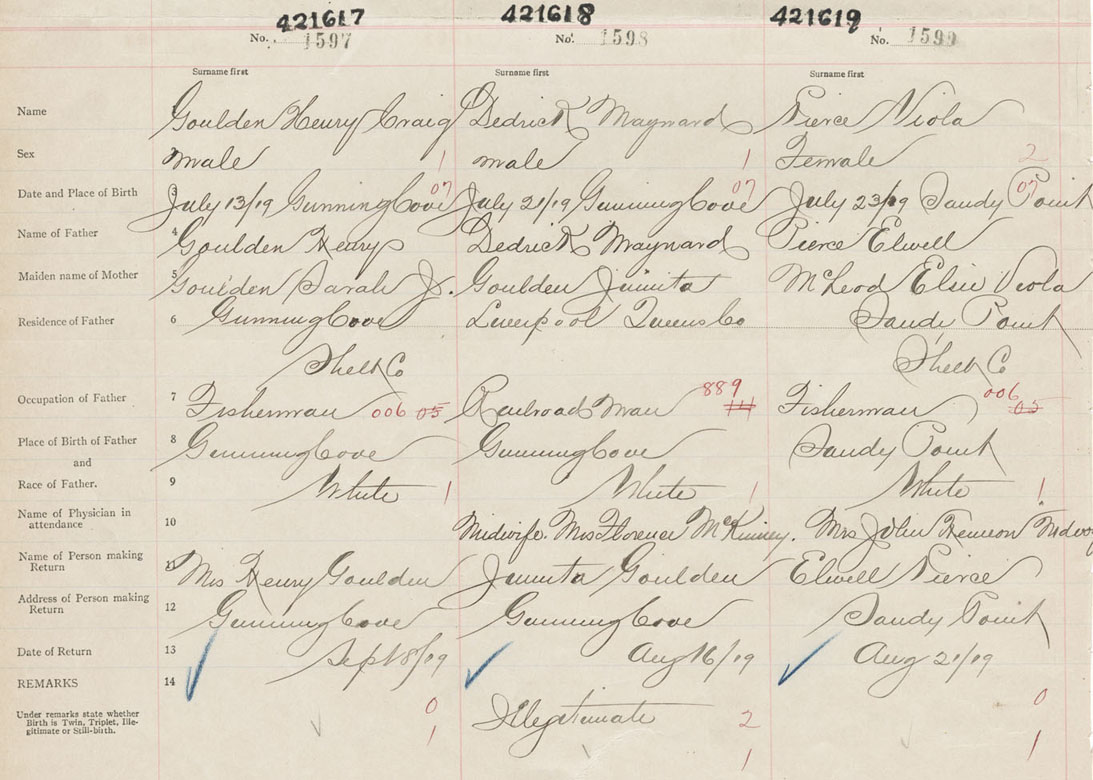 421617 421618 421619
No. 1597 No. 1598 No. 1599
Surname first Surname first Surname first
Name Goulden Henry Craig Dedrick Maynard Pierce Viola
Sex male 1 male 1 Female 2
Date and Place of Birth 3 July 13/19 Gunning Cove 07 July 21/19 Gunning Cove 07 July 23/19 Sandy Point 07
Name of Father 4 Goulden Henry Dedrick Maynard Pierce Elwell
Maiden name of Mother 5 Goulden Sarah J. Goulden Juinita McLeod Elsie Viola
Residence of Father 6 Gunning Cove Liverpool Queens Co Sandy Point
Shelb Co Shelb Co
Occupation of Father 7 Fisherman 006 05 Railroad Man 889 Fisherman 006 05
Place of Birth of Father 8 Gunning Cove Gunning Cove Sandy Point
and
Race of Father. 9 White 1 White 1 White 1
Name of Physician in
attendance 10 Midwife. Mrs Florence McKinney. Mrs John
Name of Person making
Return Mrs Henry Goulden Juinita Goulden Elwell Pierce
Address of Person making
Return 12 Gunning Cove Gunning Cove Sandy Point
Date of Return 13 Sept 8/19 Aug 16/19 Aug 21/19
REMARKS 14
Under remarks state whether
Birth is Twin, Triplet, Ille-
gitimate or Still-birth.
0 Illegitimate 2 0
1 1 1